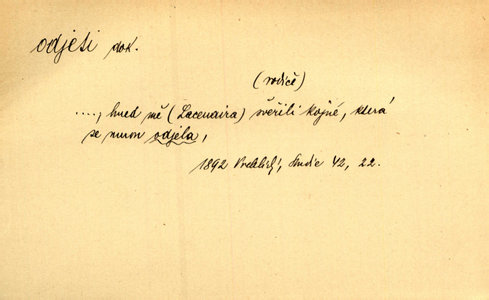 odjeti dok.
(rodiče)
...., hned mě (Lacenaira) svěřili kojné, která
se mnou odjela,
1892 Vrchlický, Studie 42, 22.